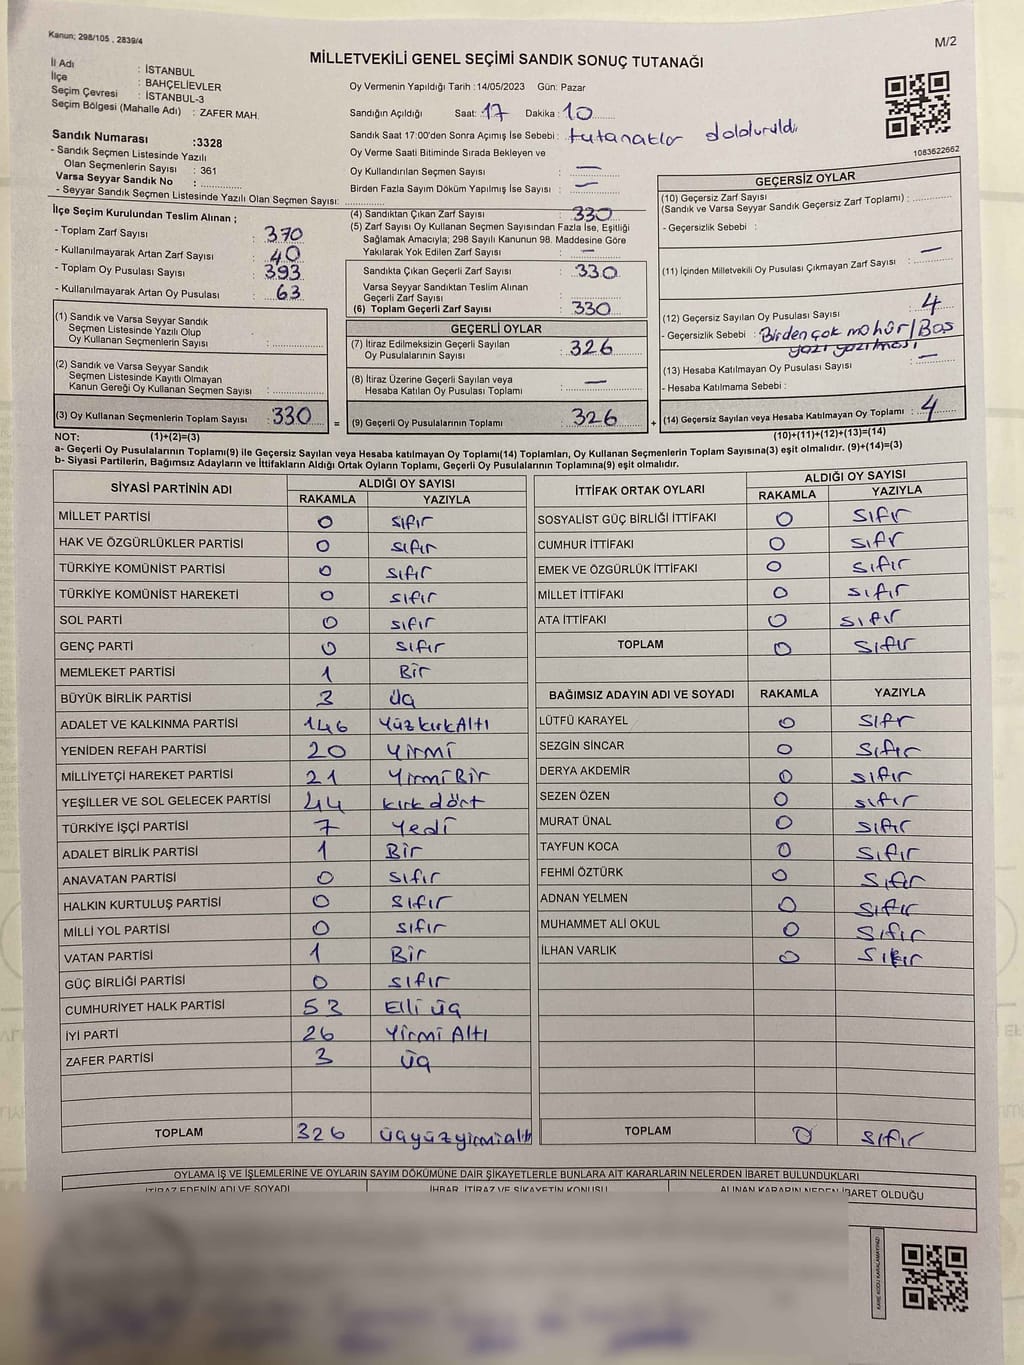 Kanun; 298/105 , 2839/4
M/2
MİLLETVEKİLİ GENEL SEÇİMİ SANDIK SONUÇ TUTANAĞI
İl Adı : İSTANBUL
İlçe : BAHÇELİEVLER
Seçim Çevresi : İSTANBUL-3
Seçim Bölgesi (Mahalle Adı) : ZAFER MAH.
Oy Vermenin Yapıldığı Tarih :14/05/2023 Gün: Pazar
Sandığın Açıldığı Saat: 17 Dakika : 10
Sandık Saat 17:00'den Sonra Açımış İse Sebebi : tutanaklar dolduruldı
Oy Verme Saati Bitiminde Sırada Bekleyen ve
Oy Kullandırılan Seçmen Sayısı : —
Birden Fazla Sayım Döküm Yapılmış İse Sayısı : —
1083622662
Sandık Numarası :3328
- Sandık Seçmen Listesinde Yazılı
Olan Seçmenlerin Sayısı : 361
Varsa Seyyar Sandık No :
- Seyyar Sandık Seçmen Listesinde Yazılı Olan Seçmen Sayısı:
İlçe Seçim Kurulundan Teslim Alınan ;
- Toplam Zarf Sayısı : 370
- Kullanılmayarak Artan Zarf Sayısı : 40
- Toplam Oy Pusulası Sayısı : 393
- Kullanılmayarak Artan Oy Pusulası : 63
(1) Sandık ve Varsa Seyyar Sandık
Seçmen Listesinde Yazılı Olup
Oy Kullanan Seçmenlerin Sayısı :
(2) Sandık ve Varsa Seyyar Sandık
Seçmen Listesinde Kayıtlı Olmayan
Kanun Gereği Oy Kullanan Seçmen Sayısı :
(3) Oy Kullanan Seçmenlerin Toplam Sayısı : 330 =
(4) Sandıktan Çıkan Zarf Sayısı : 330
(5) Zarf Sayısı Oy Kullanan Seçmen Sayısından Fazla İse, Eşitliği
Sağlamak Amacıyla; 298 Sayılı Kanunun 98. Maddesine Göre
Yakılarak Yok Edilen Zarf Sayısı : —
Sandıkta Çıkan Geçerli Zarf Sayısı : 330
Varsa Seyyar Sandıktan Teslim Alınan
Geçerli Zarf Sayısı :
(6) Toplam Geçerli Zarf Sayısı : 330
GEÇERLİ OYLAR
(7) İtiraz Edilmeksizin Geçerli Sayılan
Oy Pusulalarının Sayısı : 326
(8) İtiraz Üzerine Geçerli Sayılan veya
Hesaba Katılan Oy Pusulası Toplamı : —
(9) Geçerli Oy Pusulalarının Toplamı : 326 +
GEÇERSİZ OYLAR
(10) Geçersiz Zarf Sayısı
(Sandık ve Varsa Seyyar Sandık Geçersiz Zarf Toplamı) :
- Geçersizlik Sebebi :
(11) İçinden Milletvekili Oy Pusulası Çıkmayan Zarf Sayısı : —
(12) Geçersiz Sayılan Oy Pusulası Sayısı : 4
- Geçersizlik Sebebi : Birden çok mohür/Boş
yazı yazılması
(13) Hesaba Katılmayan Oy Pusulası Sayısı : —
- Hesaba Katılmama Sebebi :
(14) Geçersiz Sayılan veya Hesaba Katılmayan Oy Toplamı : 4
(10)+(11)+(12)+(13)=(14)
NOT: (1)+(2)=(3)
a- Geçerli Oy Pusulalarının Toplamı(9) ile Geçersiz Sayılan veya Hesaba katılmayan Oy Toplamı(14) Toplamları, Oy Kullanan Seçmenlerin Toplam Sayısına(3) eşit olmalıdır. (9)+(14)=(3)
b- Siyasi Partilerin, Bağımsız Adayların ve İttifakların Aldığı Ortak Oyların Toplamı, Geçerli Oy Pusulalarının Toplamına(9) eşit olmalıdır.
SİYASİ PARTİNİN ADI ALDIĞI OY SAYISI
RAKAMLA YAZIYLA
MİLLET PARTİSİ 0 sıfır
HAK VE ÖZGÜRLÜKLER PARTİSİ 0 sıfır
TÜRKİYE KOMÜNİST PARTİSİ 0 sıfır
TÜRKİYE KOMÜNİST HAREKETİ 0 sıfır
SOL PARTİ 0 sıfır
GENÇ PARTİ 0 sıfır
MEMLEKET PARTİSİ 1 Bir
BÜYÜK BİRLİK PARTİSİ 3 Üç
ADALET VE KALKINMA PARTİSİ 146 YüzkırkAltı
YENİDEN REFAH PARTİSİ 20 Yirmi
MİLLİYETÇİ HAREKET PARTİSİ 21 YirmiBir
YEŞİLLER VE SOL GELECEK PARTİSİ 44 kırk dört
TÜRKİYE İŞÇİ PARTİSİ 7 Yedi
ADALET BİRLİK PARTİSİ 1 Bir
ANAVATAN PARTİSİ 0 sıfır
HALKIN KURTULUŞ PARTİSİ 0 sıfır
MİLLİ YOL PARTİSİ 0 sıfır
VATAN PARTİSİ 1 Bir
GÜÇ BİRLİĞİ PARTİSİ 0 sıfır
CUMHURİYET HALK PARTİSİ 53 Elli üç
İYİ PARTİ 26 Yirmi Altı
ZAFER PARTİSİ 3 üç
TOPLAM 326 üçyüzyirmialtı
İTTİFAK ORTAK OYLARI ALDIĞI OY SAYISI
RAKAMLA YAZIYLA
SOSYALİST GÜÇ BİRLİĞİ İTTİFAKI 0 sıfır
CUMHUR İTTİFAKI 0 sıfır
EMEK VE ÖZGÜRLÜK İTTİFAKI 0 sıfır
MİLLET İTTİFAKI 0 sıfır
ATA İTTİFAKI 0 sıfır
TOPLAM 0 sıfır
BAĞIMSIZ ADAYIN ADI VE SOYADI RAKAMLA YAZIYLA
LÜTFÜ KARAYEL 0 sıfır
SEZGİN SİNCAR 0 sıfır
DERYA AKDEMİR 0 sıfır
SEZEN ÖZEN 0 sıfır
MURAT ÜNAL 0 sıfır
TAYFUN KOCA 0 sıfır
FEHMİ ÖZTÜRK 0 sıfır
ADNAN YELMEN 0 sıfır
MUHAMMET ALİ OKUL 0 sıfır
İLHAN VARLIK 0 sıfır
TOPLAM 0 sıfır
OYLAMA İŞ VE İŞLEMLERİNE VE OYLARIN SAYIM DÖKÜMÜNE DAİR ŞİKAYETLERLE BUNLARA AİT KARARLARIN NELERDEN İBARET BULUNDUKLARI
İTİRAZ EDENİN ADI VE SOYADI İHBAR, İTİRAZ VE ŞİKAYETİN KONUSU ALINAN KARARIN NEDEN İBARET OLDUĞU
KARE KODU KARALAMAYINIZ!